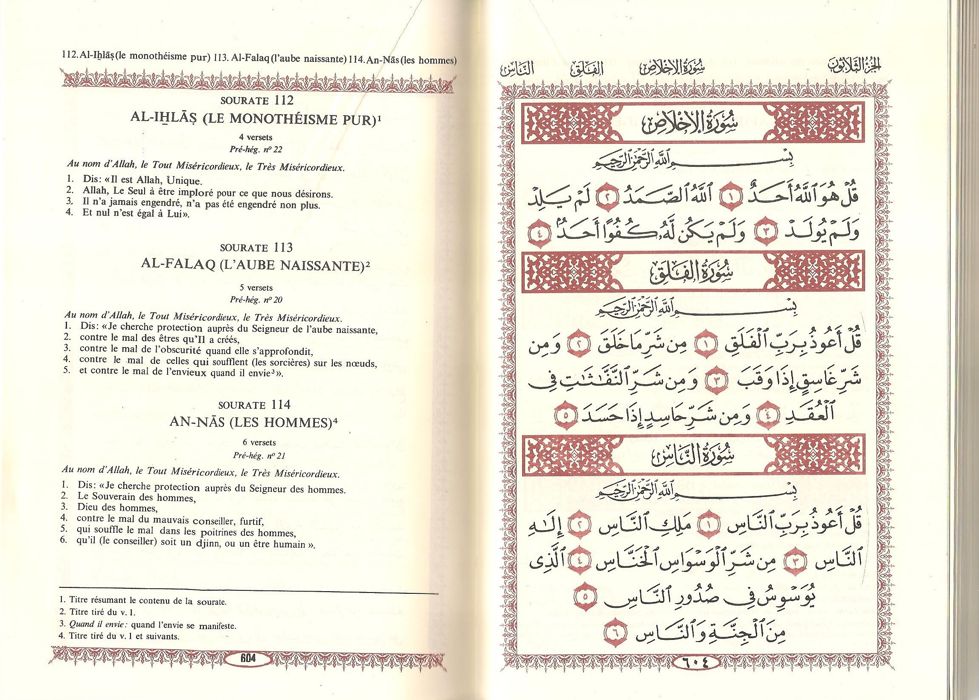 112.Al-Iẖlāṣ(le monothéisme pur) 113. Al-Falaq(l'aube naissante) 114.An-Nās(les hommes)
SOURATE 112
AL-IẖLĀṢ (LE MONOTHÉISME PUR)¹
4 versets
Pré-hég. nº 22
Au nom d'Allah, le Tout Miséricordieux, le Très Miséricordieux.
1. Dis: «Il est Allah, Unique.
2. Allah, Le Seul à être imploré pour ce que nous désirons.
3. Il n'a jamais engendré, n'a pas été engendré non plus.
4. Et nul n'est égal à Lui».
SOURATE 113
AL-FALAQ (L'AUBE NAISSANTE)²
5 versets
Pré-hég. nº 20
Au nom d'Allah, le Tout Miséricordieux, le Très Miséricordieux.
1. Dis: «Je cherche protection auprès du Seigneur de l'aube naissante,
2. contre le mal des êtres qu'Il a créés,
3. contre le mal de l'obscurité quand elle s'approfondit,
4. contre le mal de celles qui soufflent (les sorcières) sur les nœuds,
5. et contre le mal de l'envieux quand il envie³».
SOURATE 114
AN-NĀS (LES HOMMES)⁴
6 versets
Pré-hég. nº 21
Au nom d'Allah, le Tout Miséricordieux, le Très Miséricordieux.
1. Dis: «Je cherche protection auprès du Seigneur des hommes.
2. Le Souverain des hommes,
3. Dieu des hommes,
4. contre le mal du mauvais conseiller, furtif,
5. qui souffle le mal dans les poitrines des hommes,
6. qu'il (le conseiller) soit un djinn, ou un être humain».
1. Titre résumant le contenu de la sourate.
2. Titre tiré du v. 1.
3. Quand il envie: quand l'envie se manifeste.
4. Titre tiré du v. 1 et suivants.
604
الجزء الثلاثون سورة الإخلاص الفلق الناس
سُورَةُ الإِخْلَاصِ
بِسْمِ اللَّهِ الرَّحْمَٰنِ الرَّحِيمِ
قُلْ هُوَ اللَّهُ أَحَدٌ ١ اللَّهُ الصَّمَدُ ٢ لَمْ يَلِدْ
وَلَمْ يُولَدْ ٣ وَلَمْ يَكُن لَّهُ كُفُوًا أَحَدٌ ٤
سُورَةُ الْفَلَقِ
بِسْمِ اللَّهِ الرَّحْمَٰنِ الرَّحِيمِ
قُلْ أَعُوذُ بِرَبِّ الْفَلَقِ ١ مِن شَرِّ مَا خَلَقَ ٢ وَمِن
شَرِّ غَاسِقٍ إِذَا وَقَبَ ٣ وَمِن شَرِّ النَّفَّاثَاتِ فِي
الْعُقَدِ ٤ وَمِن شَرِّ حَاسِدٍ إِذَا حَسَدَ ٥
سُورَةُ النَّاسِ
بِسْمِ اللَّهِ الرَّحْمَٰنِ الرَّحِيمِ
قُلْ أَعُوذُ بِرَبِّ النَّاسِ ١ مَلِكِ النَّاسِ ٢ إِلَٰهِ
النَّاسِ ٣ مِن شَرِّ الْوَسْوَاسِ الْخَنَّاسِ ٤ الَّذِي
يُوَسْوِسُ فِي صُدُورِ النَّاسِ ٥
مِنَ الْجِنَّةِ وَالنَّاسِ ٦
٦٠٤